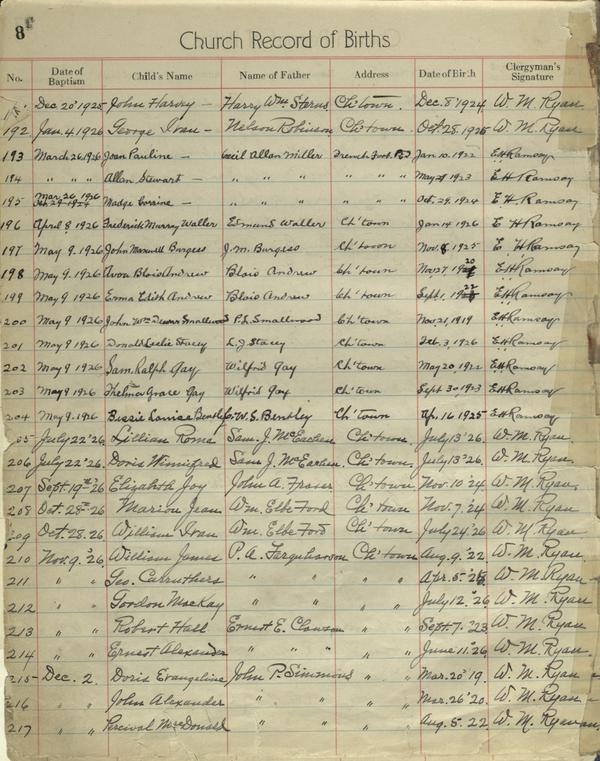 8
Church Record of Births
No. Date of Baptism Child's Name Name of Father Address Date of Birth Clergyman's Signature
Dec. 20' 1925 John Harvey — Harry Wm Sterns Ch'town. Dec. 8' 1924 W. M. Ryan
192 Jan. 4 1926 George Ivan — Nelson Robinson Ch'town Oct. 28. 1925 W. M. Ryan
193 March 26 1926 Joan Pauline — Cecil Allan Miller Jan. 10. 1922 E H Ramsay
194 " " " Allan Stewart — " " " " " May 21 1923 E H Ramsay
195 Mar. 26, 1926 Madge Loraine — " " " " " Oct. 24, 1924 E. H Ramsay
196 April 8 1926 Frederick Murray Waller Edmund Waller Ch'town Jan 14 1926 E H Ramsay
197 May 9. 1926 John Maxwell Burgess J. M. Burgess Ch'town Nov. 8 1925 E H Ramsay
198 May 9. 1926 Avon Blois Andrew Blois Andrew Ch'town Nov 27 1920 E H Ramsay
199 May 9. 1926 Erma Edith Andrew Blois Andrew Ch'town Sept 1, 1922 E H Ramsay
200 May 9 1926 John Wm Dewar Smallwood P. L. Smallwood Ch'town Nov. 21, 1919 E H Ramsay
201 May 9 1926 Donald Leslie Stacey L. J. Stacey Ch'town Feb. 3, 1926 E H Ramsay
202 May 9 1926 Sam. Ralph Gay Wilfrid Gay Ch'town May 20, 1922 E. H Ramsay
203 May 9 1926 Thelma Grace Gay Wilfrid Gay Ch'town Sept 30, 1923 E H Ramsay
204 May 9. 1926 Bessie Louise Bentley W. S. Bentley Ch'town Ap. 16 1925 E H Ramsay
05 July 22' 26 Lillian Roma Sam. J. McEachern Ch'town, July 13' 26. W. M. Ryan
206 July 22' 26 Doris Winnifred Sam J. McEachern Ch'town, July 13' 26. W. M. Ryan.
207 Sept. 19th '26 Elizabeth Joy John A. Fraser Ch'town Nov. 10 '24 W. M. Ryan.
208 Oct. 28th 26 Marion Jean Wm. Elbe Ford Ch'town Nov. 7. '24 W. M. Ryan
209 Oct. 28. 26 William Ivan Wm. Elbe Ford Ch'town July 24 '26 W. M. Ryan
210 Nov. 9. '26, William James P. A. Farquharson Ch'town Aug. 9. '22 W. M. Ryan.
211 " " Geo. Carruthers " " " " Apr. 5. W. M. Ryan
212 " " Gordon MacKay " " " July 12. '26 W. M. Ryan
213 " " Robert Hall Ernest E. Clawson " " Sept. 7. '23. W. M. Ryan
214 " " Ernest Alexander " " " " " June 11. '26 W. M. Ryan.
215 - Dec. 2. Doris Evangeline John P. Simmons " " Mar. 20 '19. W. M. Ryan.
216 John Alexander " " " " Mar. 26 '20. W. M. Ryan
217 Percival MacDonald " " " " Aug. 5. 22. W. M. Ryan